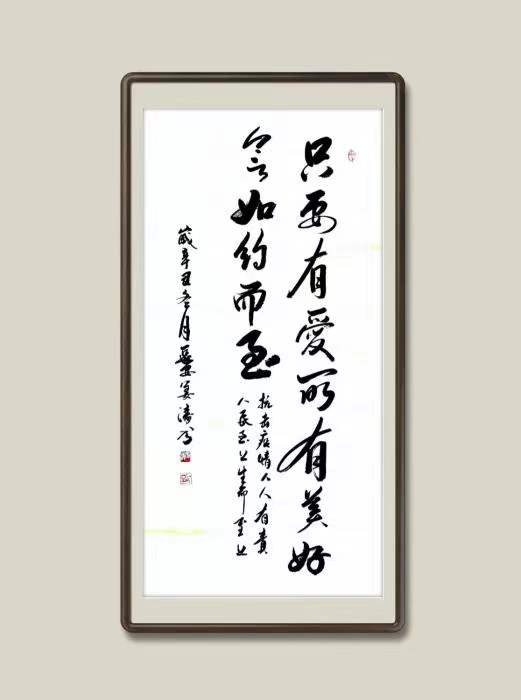 只要有愛所有美好
会如约而至
抗击疫情人人有責
人民至上生命至上
歲辛丑冬月姜濤